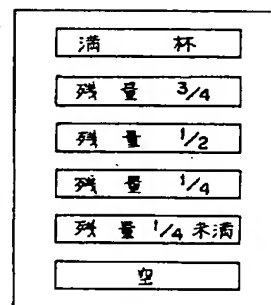 満杯
残量 3/4
残量 1/2
残量 1/4
残量 1/4 未満
空